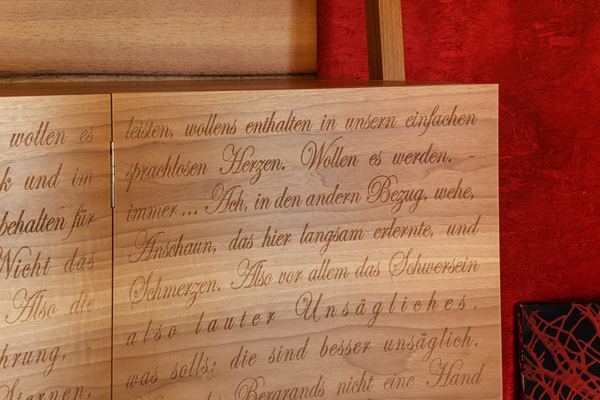 wollen es
k und im
behalten für
Nicht das
Also die
hrung,
Sternen,
leisten, wollens enthalten in unsern einfachen
sprachlosen Herzen. Wollen es werden. –
immer ... Ach, in den andern Bezug, wehe,
Anschaun, das hier langsam erlernte, und
Schmerzen. Also vor allem das Schwersein
also lauter Unsägliches.
was solls: die sind besser unsäglich.
Bergrands nicht eine Hand